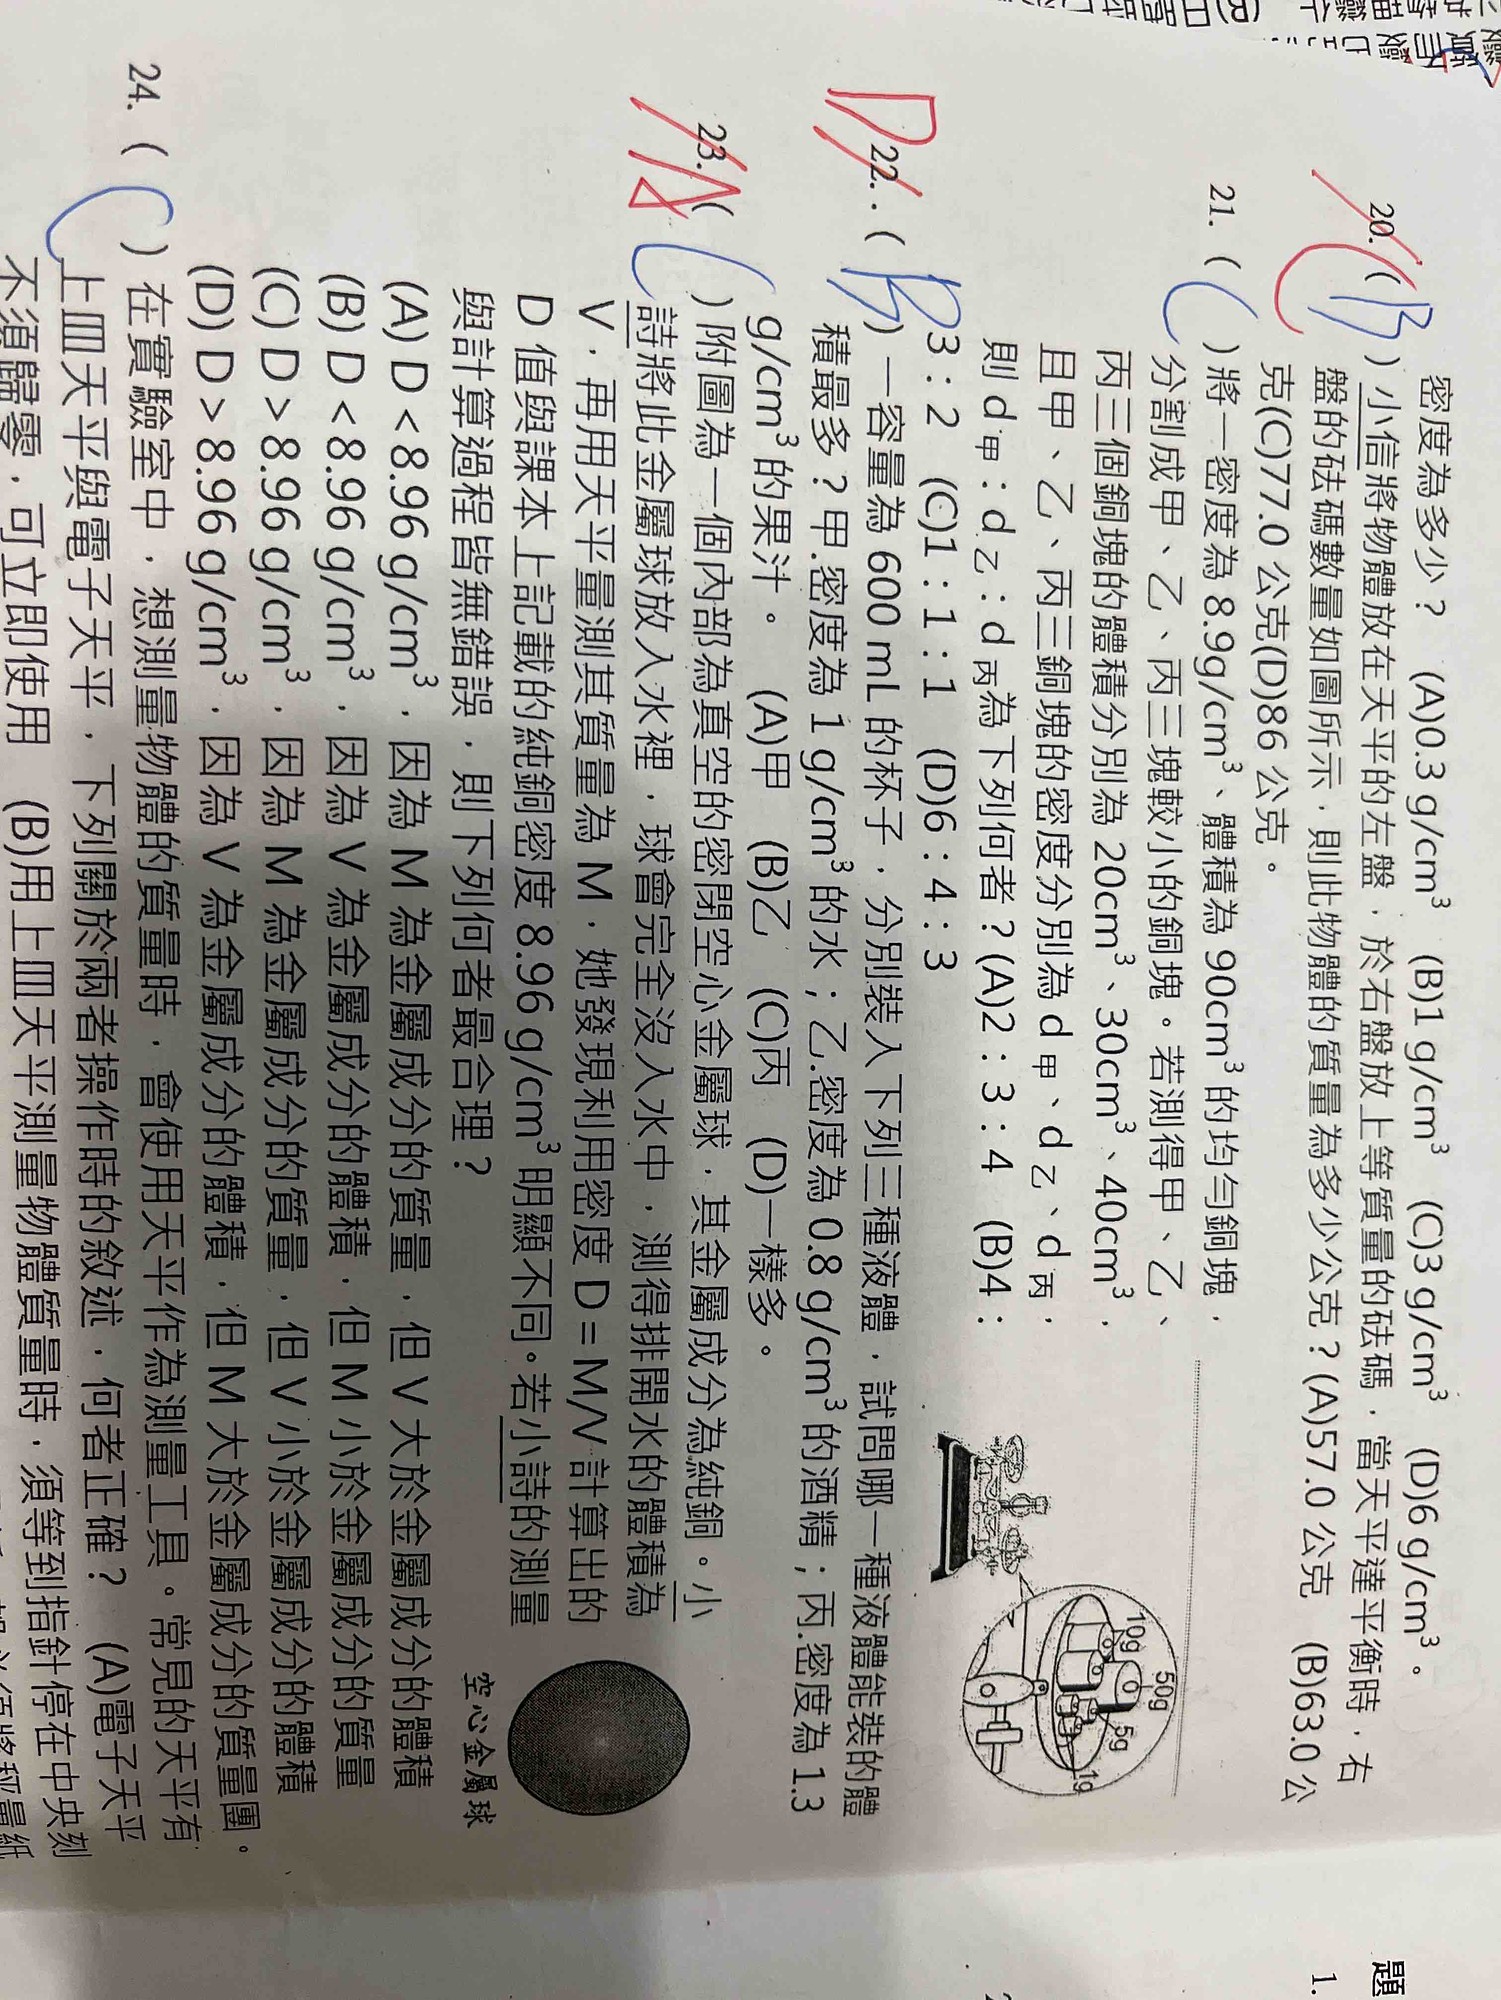 密度為多少？ (A)0.3 g/cm³ (B)1 g/cm³ (C)3 g/cm³ (D)6 g/cm³。
20.(B)小信將物體放在天平的左盤，於右盤放上等質量的砝碼，當天平達平衡時，右
C
盤的砝碼數量如圖所示，則此物體的質量為多少公克？(A)57.0 公克 (B)63.0 公
克(C)77.0 公克(D)86 公克。
21.(C)將一密度為 8.9g/cm³、體積為 90cm³ 的均勻銅塊，
分割成甲、乙、丙三塊較小的銅塊。若測得甲、乙、
丙三個銅塊的體積分別為 20cm³、30cm³、40cm³，
且甲、乙、丙三銅塊的密度分別為 d 甲、d 乙、d 丙，
則 d 甲：d 乙：d 丙為下列何者？(A)2：3：4 (B)4：
3：2 (C)1：1：1 (D)6：4：3
50g
10g
5g
1g
D
22.(B)一容量為 600 mL 的杯子，分別裝入下列三種液體，試問哪一種液體能裝的體
積最多？甲.密度為 1 g/cm³ 的水；乙.密度為 0.8 g/cm³ 的酒精；丙.密度為 1.3
g/cm³ 的果汁。 (A)甲 (B)乙 (C)丙 (D)一樣多。
A
23.(C)附圖為一個內部為真空的密閉空心金屬球，其金屬成分為純銅。小
詩將此金屬球放入水裡，球會完全沒入水中，測得排開水的體積為
V，再用天平量測其質量為 M，她發現利用密度 D = M/V 計算出的
D 值與課本上記載的純銅密度 8.96 g/cm³ 明顯不同。若小詩的測量
與計算過程皆無錯誤，則下列何者最合理？
空心金屬球
(A) D < 8.96 g/cm³，因為 M 為金屬成分的質量，但 V 大於金屬成分的體積
(B) D < 8.96 g/cm³，因為 V 為金屬成分的體積，但 M 小於金屬成分的質量
(C) D > 8.96 g/cm³，因為 M 為金屬成分的質量，但 V 小於金屬成分的體積
(D) D > 8.96 g/cm³，因為 V 為金屬成分的體積，但 M 大於金屬成分的質量團。
24.(C)在實驗室中，想測量物體的質量時，會使用天平作為測量工具。常見的天平有
上皿天平與電子天平，下列關於兩者操作時的敘述，何者正確？ (A)電子天平
不須歸零，可立即使用 (B)用上皿天平測量物體質量時，須等到指針停在中央刻
題
1.